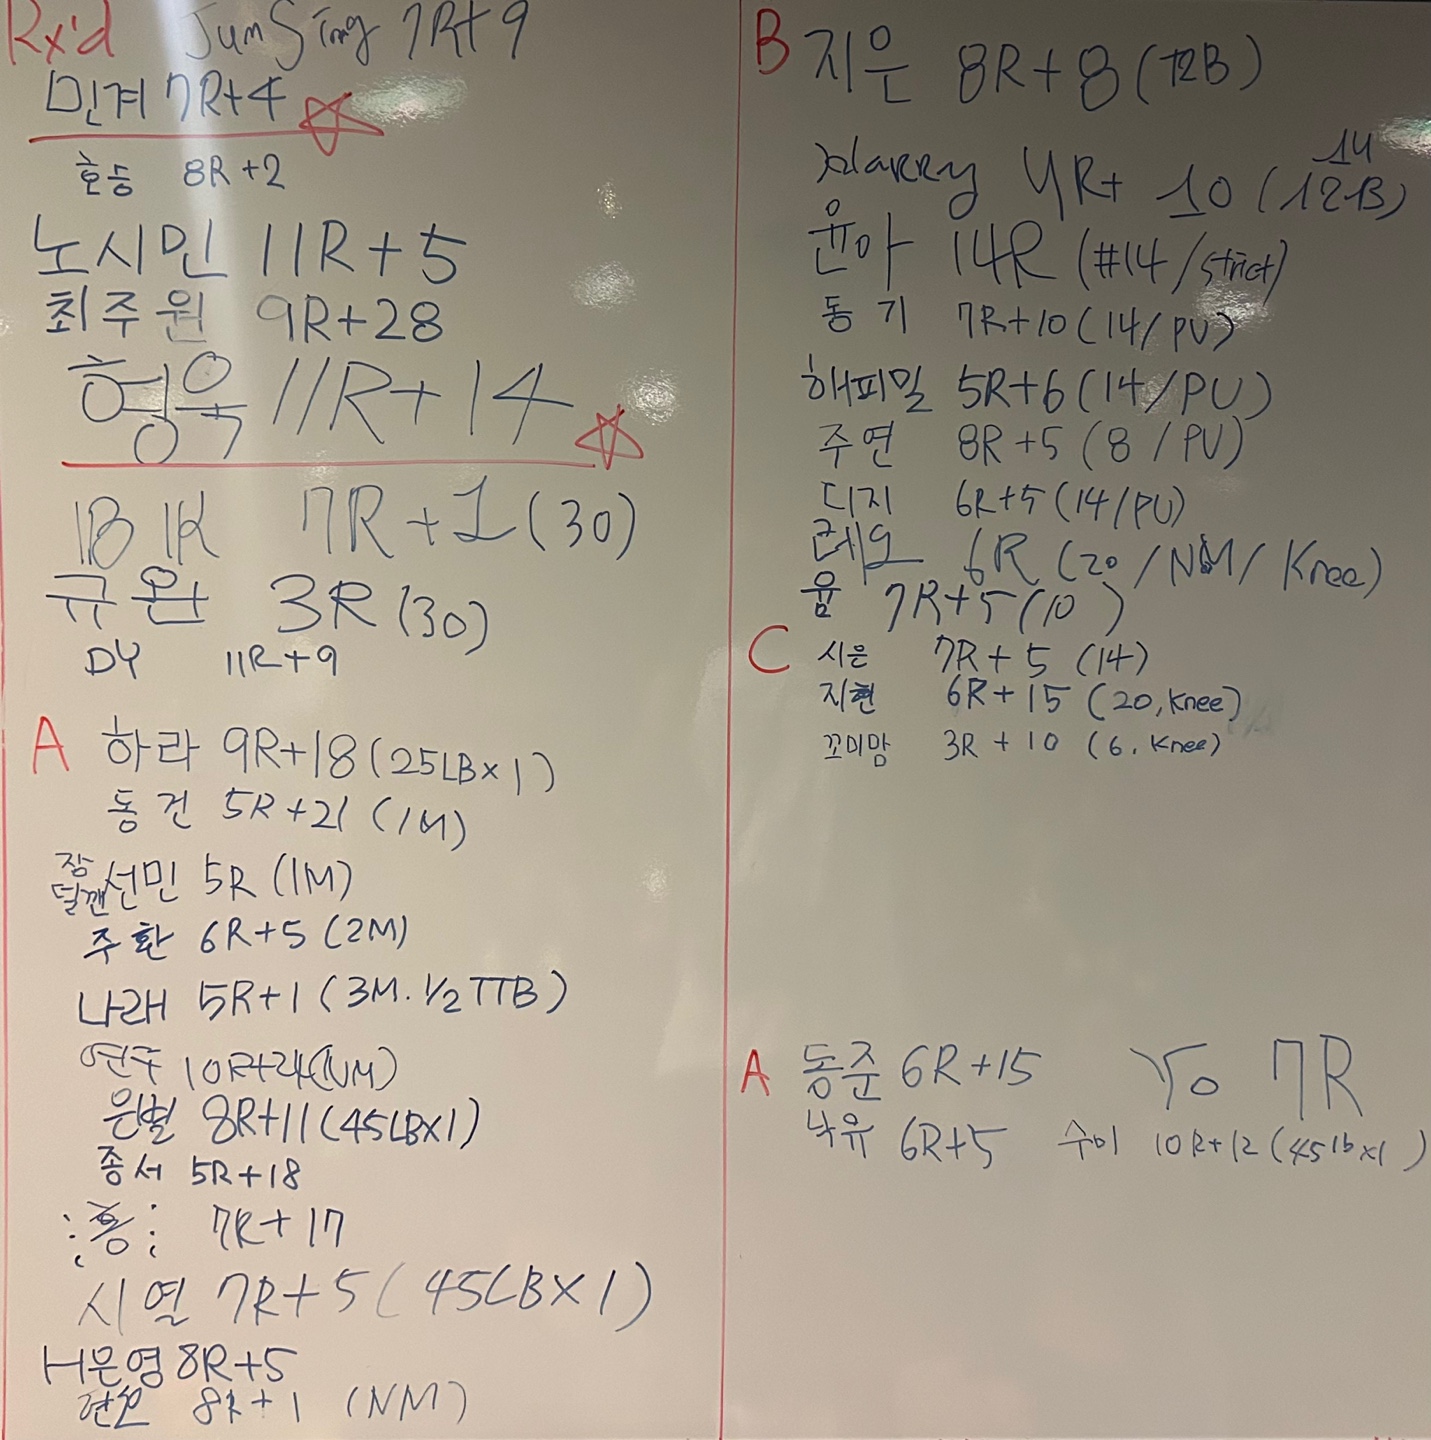 Rx'd JunSing 7R+9
민겨 7R+4
호등 8R+2
노시민 11R+5
최주원 9R+28
형욱 11R+14
IB IK 7R+1 (30)
규완 3R (30)
DY 11R+9
A 하라 9R+18 (25LB×1)
동건 5R+21 (1M)
장
덜깬 선민 5R (1M)
주환 6R+5 (2M)
나래 5R+1 (3M. 1/2 TTB)
연주 10R+24 (NM)
은별 8R+11 (45LB×1)
종서 5R+18
홍 7R+17
시열 7R+5 (45LB×1)
H은영 8R+5
8R+1 (NM)
B 지은 8R+8 (12B)
Harry 4R+ 10 (12B)
14
윤아 14R (#14/strict)
동기 7R+10 (14/PU)
해피밀 5R+6 (14/PU)
주연 8R+5 (8/PU)
디지 6R+5 (14/PU)
레오 6R (20/NM/Knee)
윰 7R+5 (10)
C 시은 7R+5 (14)
지현 6R+15 (20, Knee)
꼬미맘 3R+10 (6. Knee)
A 동준 6R+15 Yo 7R
낙유 6R+5 수미 10R+12 (45lb×1)